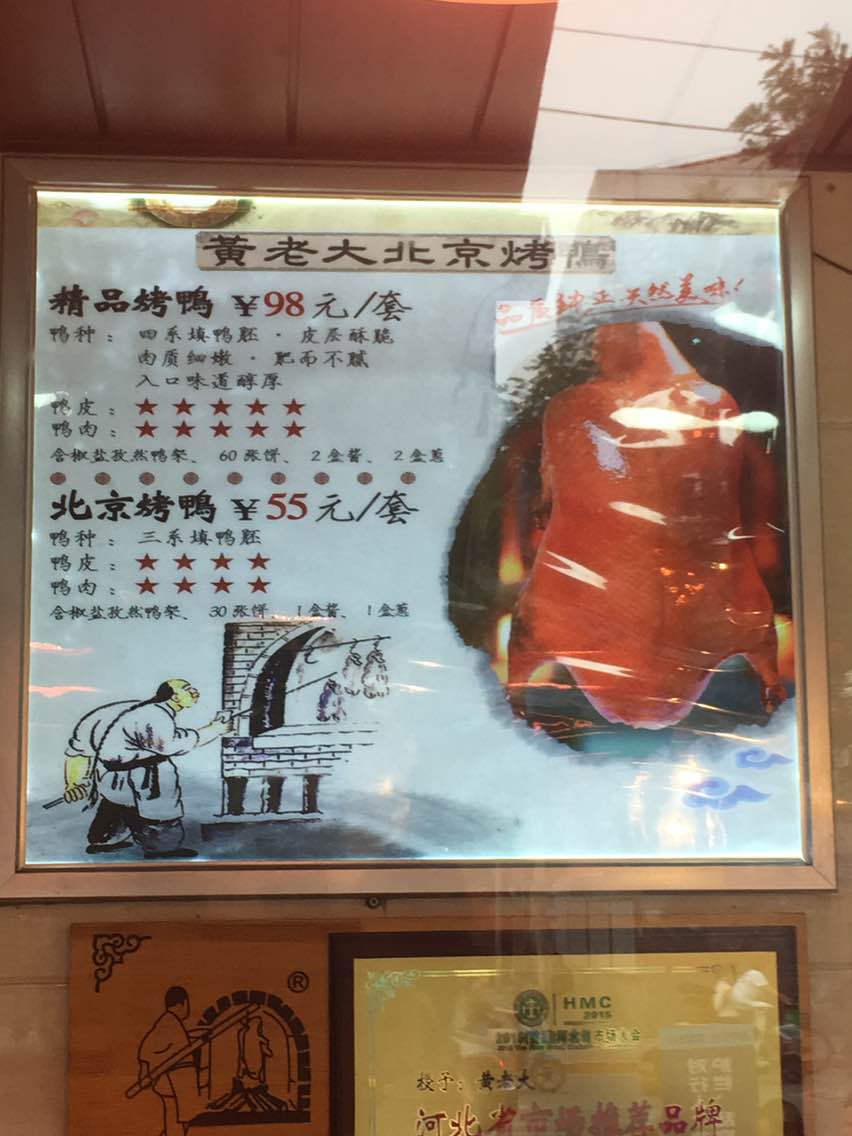 黃老大北京烤鴨
品质纯正 天然美味!
精品烤鴨 ¥98元/套
鸭种: 四系填鸭胚·皮层酥脆
肉质细嫩·肥而不腻
入口味道醇厚
鸭皮: ★★★★★
鸭肉: ★★★★★
含椒盐孜然鸭架、60张饼、2盒酱、2盒葱
北京烤鴨 ¥55元/套
鸭种: 三系填鸭胚
鸭皮: ★★★★
鸭肉: ★★★★
含椒盐孜然鸭架、30张饼、1盒酱、1盒葱
®
HMC
2015
授予: 黄老大
河北省市场推荐品牌